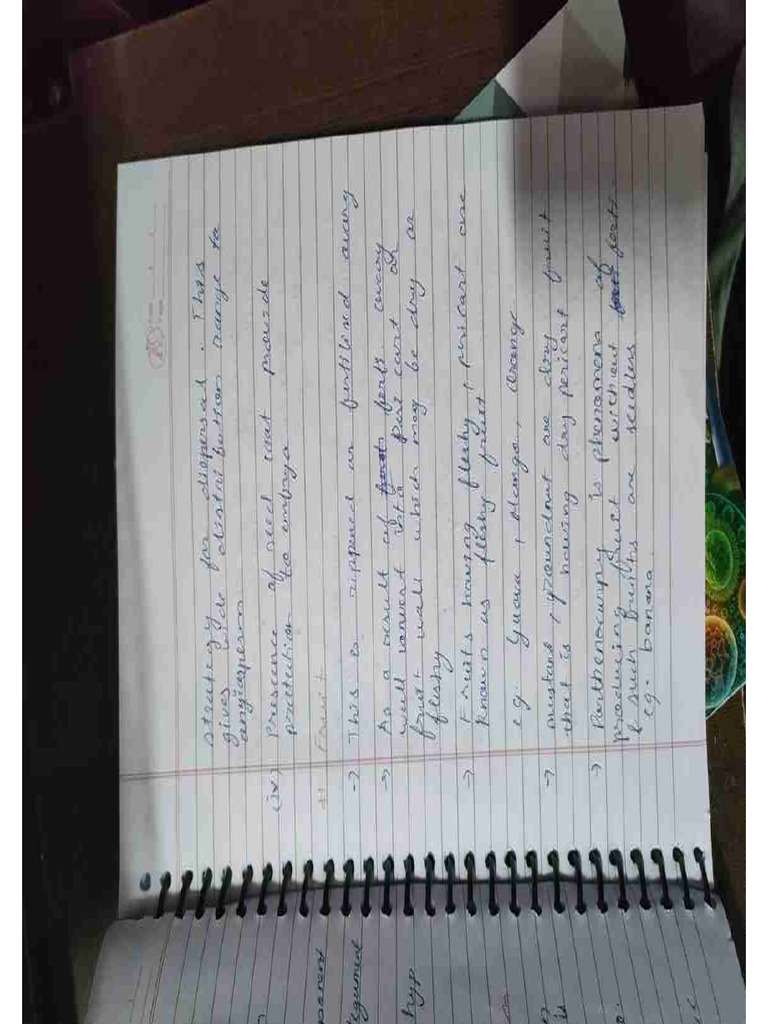 strategy for dispersal. This
gives wide distribution range to
angiosperm
(iv) Prescence of seed coat provide
protection to embryo
Fruit
→ This is rippened or fertilind ovary
→ As a result of fert? ovary
wall convert into pericart or
fruit wall which may be dry or
fleshy
→ Fruits having fleshy, pericart are
known as fleshy fruit
eg. Guava, Mango, orange
→ mustard, groundnut are dry fruit
that is, having dry pericart
→ Parthenocarpy is phenomena of
producing fruit without fert?
& such fruits are seedless
eg. banana.
hyp
is